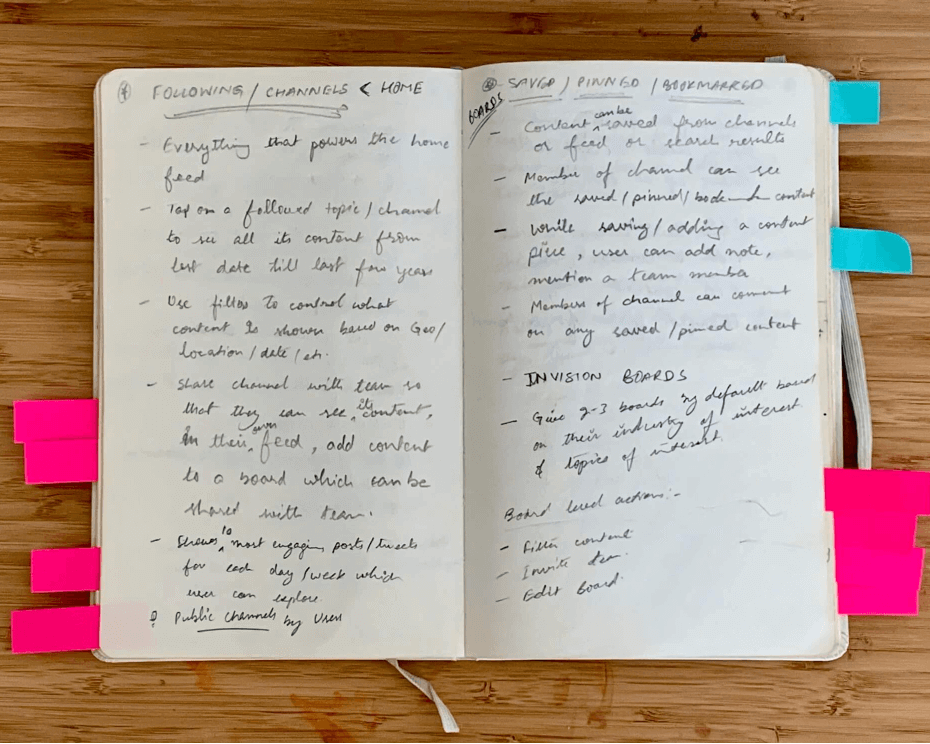 FOLLOWING / CHANNELS < HOME
- Everything that powers the home
feed
- Tap on a followed topic / channel
to see all its content from
last date till last few years
- Use filter to control what
content is shown based on Geo/
location / date / etc.
- Share channel with team so
that they can see its content,
in their own feed, add content
to a board which can be
shared with team.
- Shows 10 most engaging posts / tweets
for each day / week which
user can explore
Public channels by Users
SAVED / PINNED / BOOKMARKED
BOARDS
- Content can be saved from channels
or feed or search results
- Member of channel can see
the saved / pinned / content
- While saving / adding a content
piece, user can add note,
mention a team member
- Members of channel can comment
on any saved / pinned content
- INVISION BOARDS
- Give 2-3 boards by default based
on their industry of interest
& topics of interest.
Board level actions:-
- Filter content
- Invite team
- Edit Board